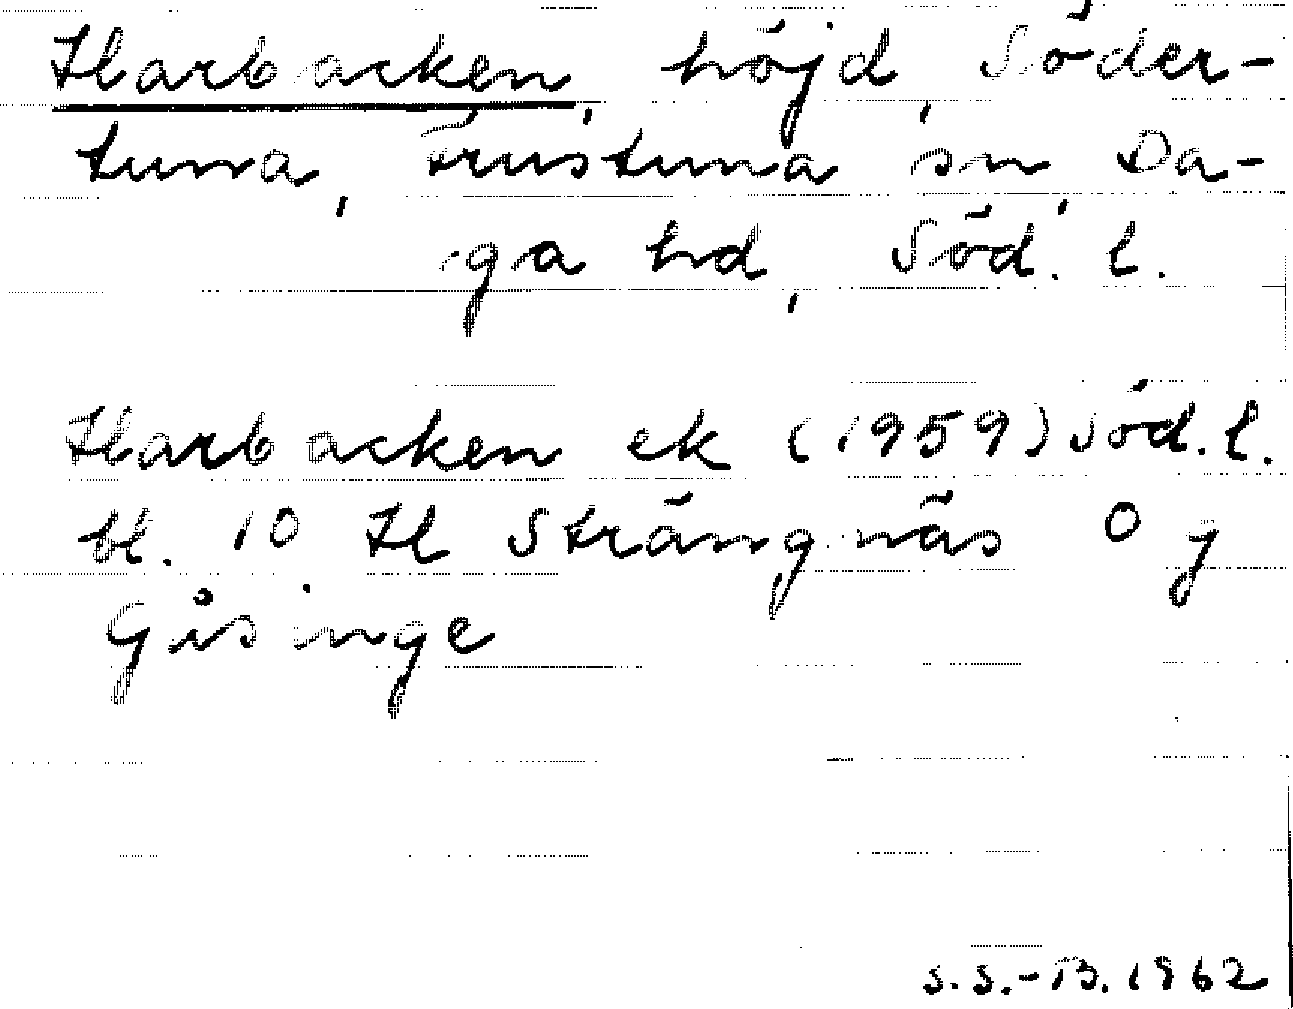 Harbacken, höjd, Söder-
tuna, Frustuna sn, Da-
ga hd, Söd. l.
Harbacken ek (1959) Söd. l.
bl. 10 H Strängnäs O g
Gisinge
S. S.-B. 1962